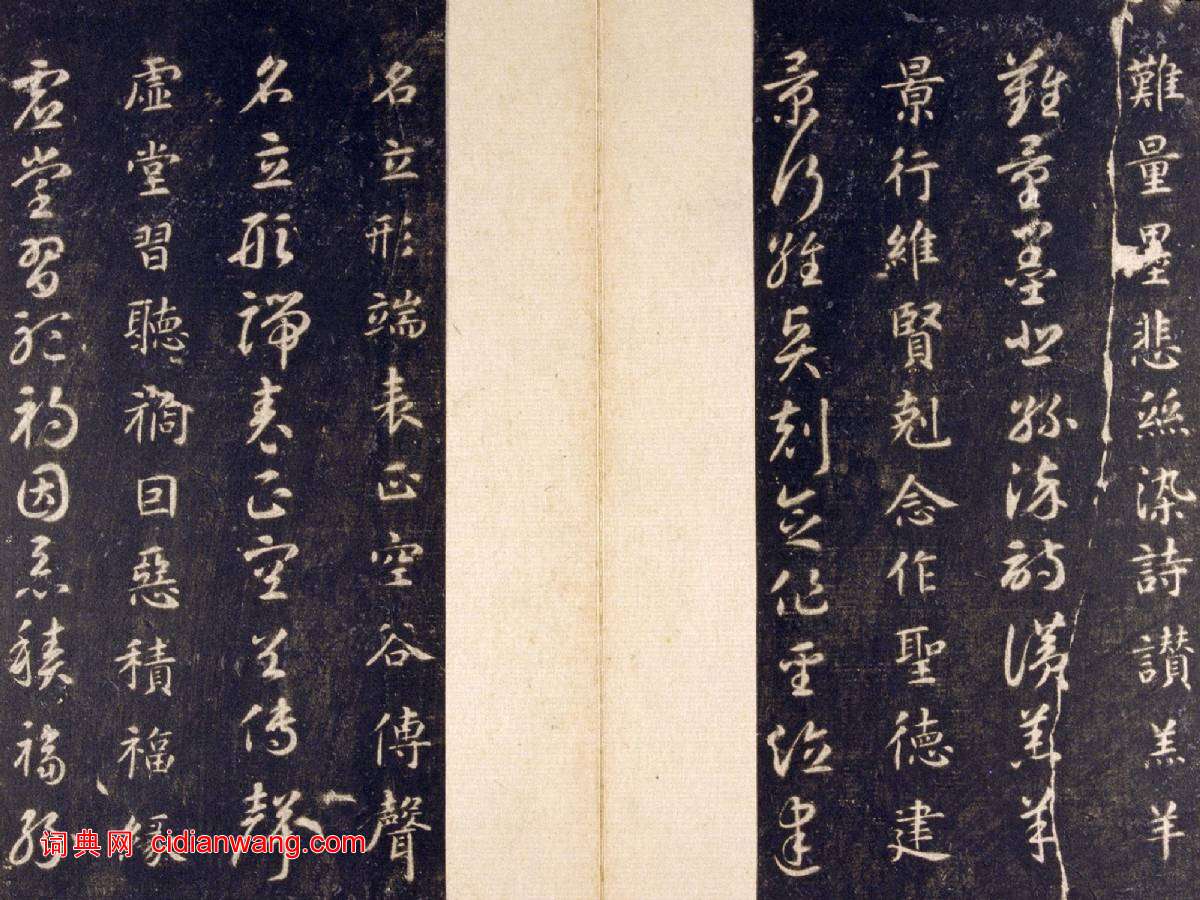 難量墨悲絲染詩讚羔羊
難量墨悲絲染詩讚羔羊
景行維賢剋念作聖德建
景行維賢剋念作聖德建
名立形端表正空谷傳聲
名立形端表正空谷傳聲
虛堂習聽禍因惡積福緣
虛堂習聽禍因惡積福緣
词典网 cidianwang.com